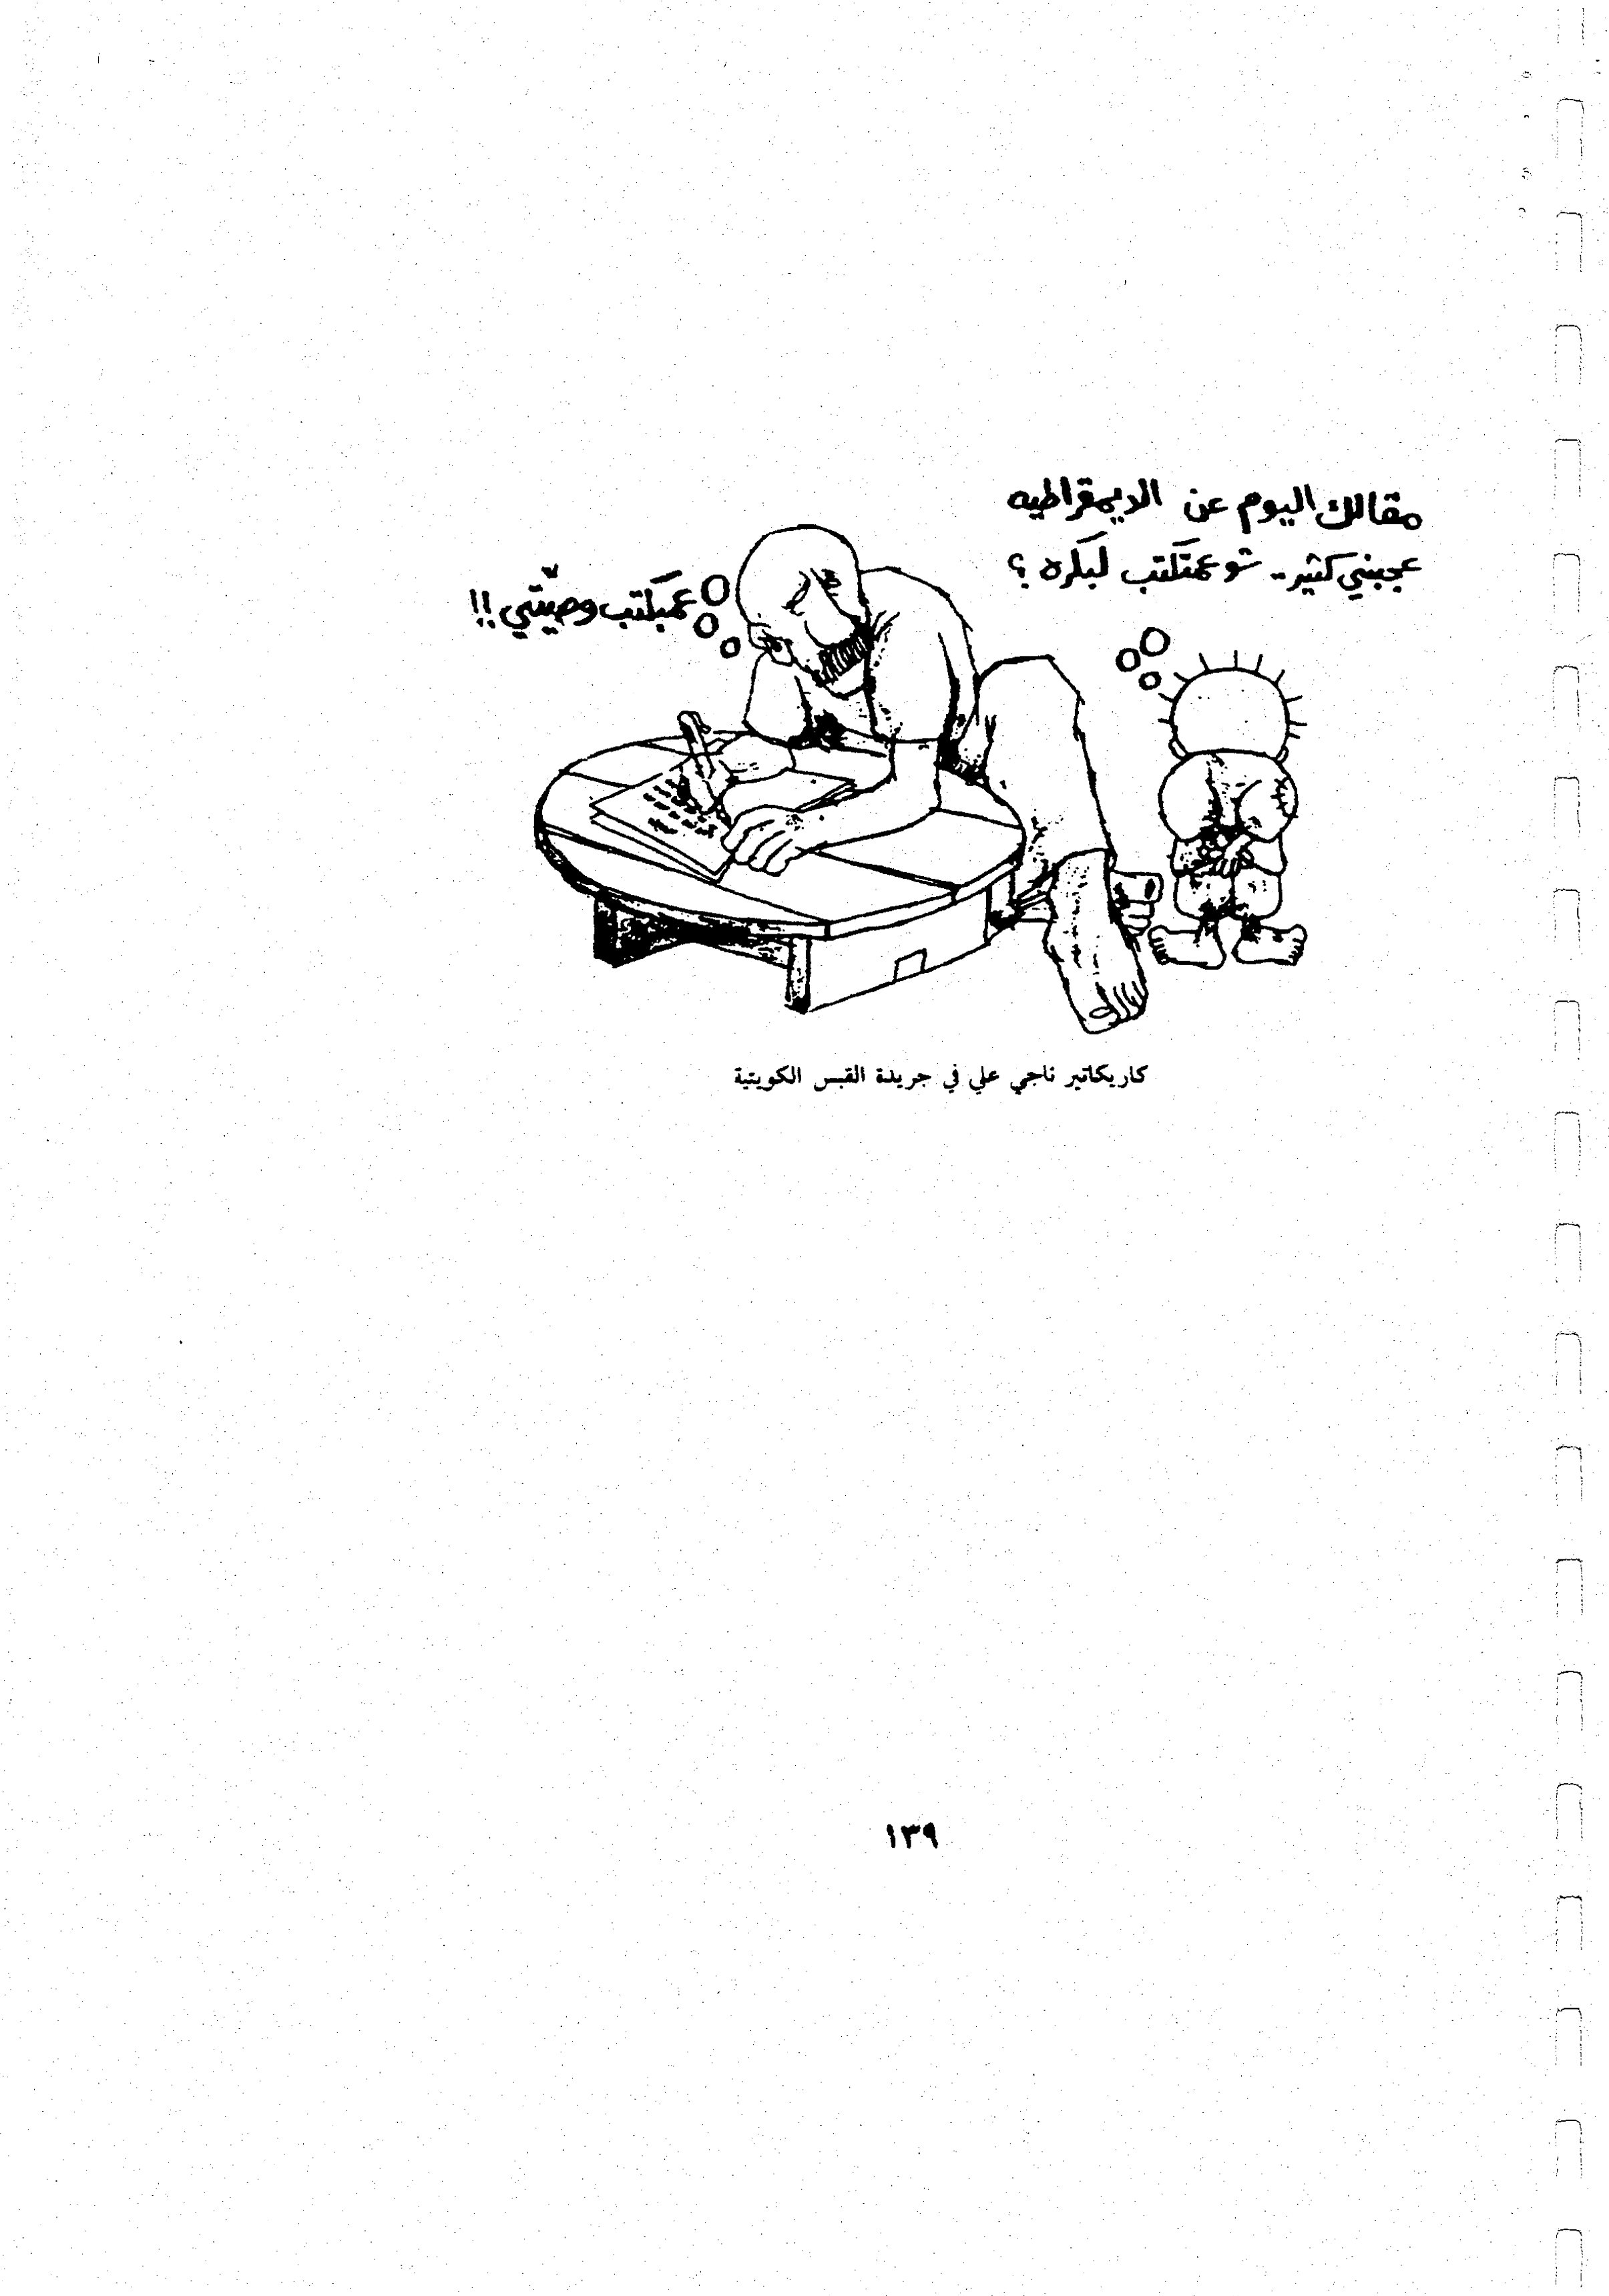 مقالك اليوم عن الديمقراطيه
عجبني كثير.. شو عمتكتب لبكره ؟
عمبكتب وصيّتي !!
كاريكاتير ناجي علي في جريدة القبس الكويتية
١٣٩